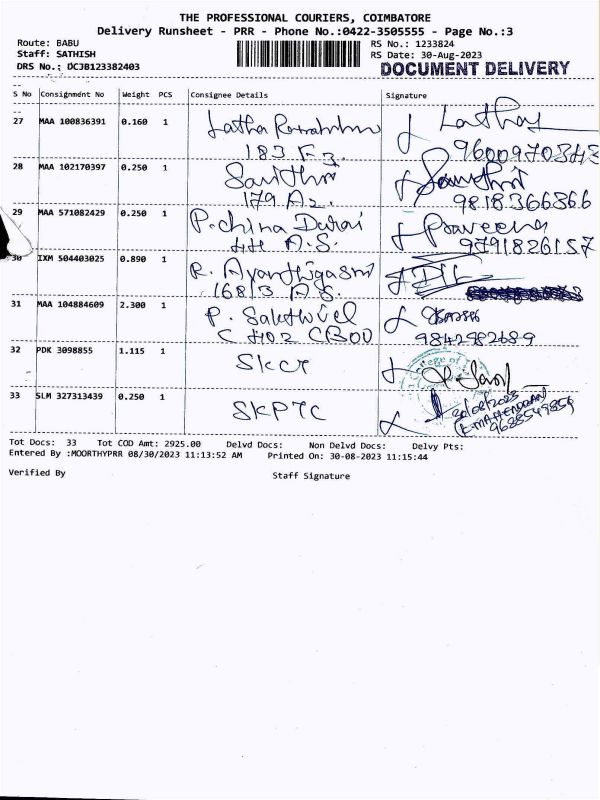 THE PROFESSIONAL COURIERS, COIMBATORE
Delivery Runsheet - PRR - Phone No.:0422-3505555 - Page No.:3
Route: BABU
Staff: SATHISH
DRS No.: DCJB123382403
RS No.: 1233824
RS Date: 30-Aug-2023
DOCUMENT DELIVERY
S No Consignment No Weight PCS Consignee Details Signature
27 MAA 100836391 0.160 1 Latha
183 F3
Lathay
9600970343
28 MAA 102170397 0.250 1 Savithri
179 A2
9818366866
29 MAA 571082429 0.250 1 P. china Durai
A.S.
Praveena
9791826157
30 IXM 504403025 0.890 1 R.
168/3 A.S.
31 MAA 104884609 2.300 1 P. Sakthivel
C 402 CBOD
9842982689
32 PDK 3098855 1.115 1 SKCT
College of
33 SLM 327313439 0.250 1 SKPTC
30/08/2023
9688549859
Tot Docs: 33 Tot COD Amt: 2925.00 Delvd Docs: Non Delvd Docs: Delvy Pts:
Entered By :MOORTHYPRR 08/30/2023 11:13:52 AM Printed On: 30-08-2023 11:15:44
Verified By Staff Signature